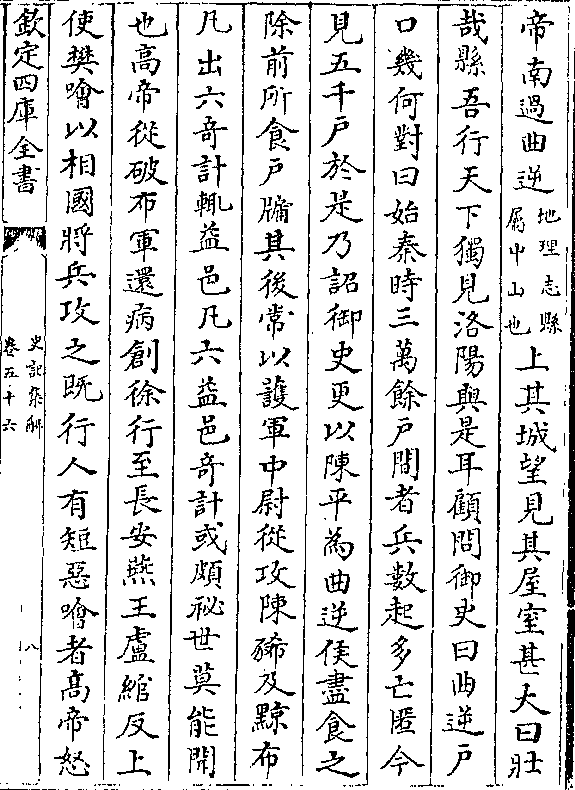 帝南過曲逆地理志縣屬中山也上其城望見其屋室甚大曰壯
哉縣吾行天下獨見洛陽與是耳顧問御史曰曲逆户
口幾何對曰始秦時三萬餘户間者兵數起多亡匿今
見五千户於是乃詔御史更以陳平為曲逆侯盡食之
除前所食户牖其後常以護軍中尉從攻陳豨及黥布
凡出六奇計輒益邑凡六益邑奇計或頗祕世莫能聞
也高帝從破布軍還病創徐行至長安燕王盧綰反上
使樊噲以相國將兵攻之既行人有短惡噲者高帝怒
欽定四庫全書
史記集解
卷五十六
八